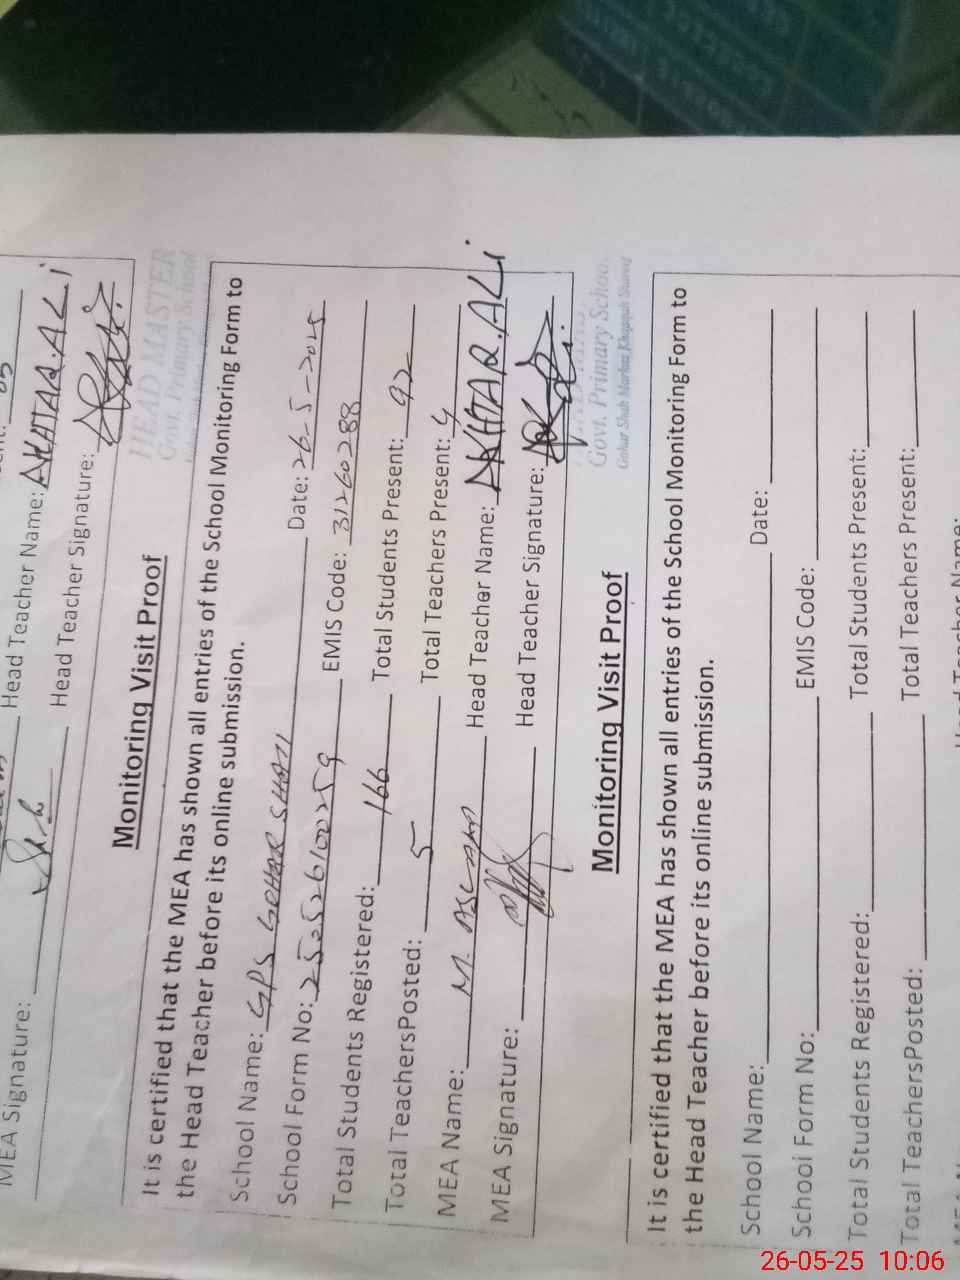 MEA Signature:
Head Teacher Name: AKHTAR.ALi
Head Teacher Signature:
HEAD MASTER
Govt. Primary School
Monitoring Visit Proof
It is certified that the MEA has shown all entries of the School Monitoring Form to
the Head Teacher before its online submission.
School Name: GPS GOHAR SHAH Date: 26-5-2025
School Form No: 2505261002259 EMIS Code: 31260288
Total Students Registered: 166 Total Students Present: 92
Total TeachersPosted: 5 Total Teachers Present: 4
MEA Name: M. Head Teacher Name: AKHTAR.ALi
MEA Signature: Head Teacher Signature:
Govt. Primary School
Gohar Shah Markaz
Monitoring Visit Proof
It is certified that the MEA has shown all entries of the School Monitoring Form to
the Head Teacher before its online submission.
School Name: Date:
School Form No: EMIS Code:
Total Students Registered: Total Students Present:
Total TeachersPosted: Total Teachers Present:
Head Teacher Name:
26-05-25 10:06